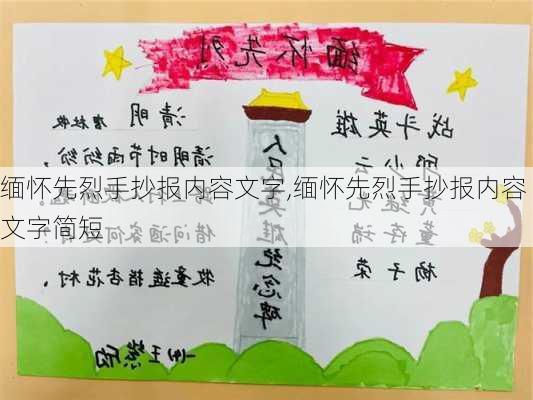 缅怀先烈!
清明 唐杜牧
清明时节雨纷纷,
借问酒家何
牧童遥指杏花村。
人民英雄纪念碑
战斗英雄
邱少云
黄继光
董存瑞
杨子荣
缅怀先烈手抄报内容文字,缅怀先烈手抄报内容
文字简短